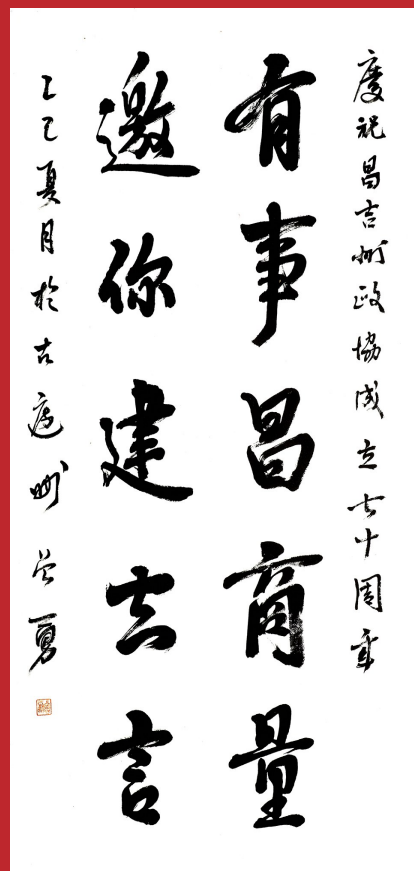 慶祝昌吉州政協成立七十周年
有事昌商量
邀你建吉言
乙巳夏月於古庭州 勇